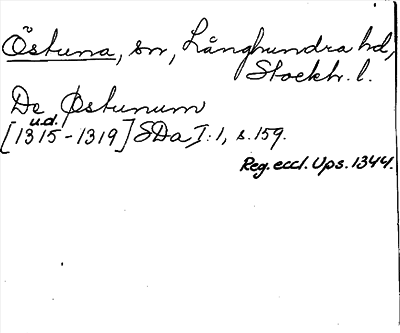 Östuna, sn, Långhundra hd,
Stockh. l.
De Østunum
u.d.
[1315-1319] SDa I:1, s. 159.
Reg. eccl. Ups. 1344.